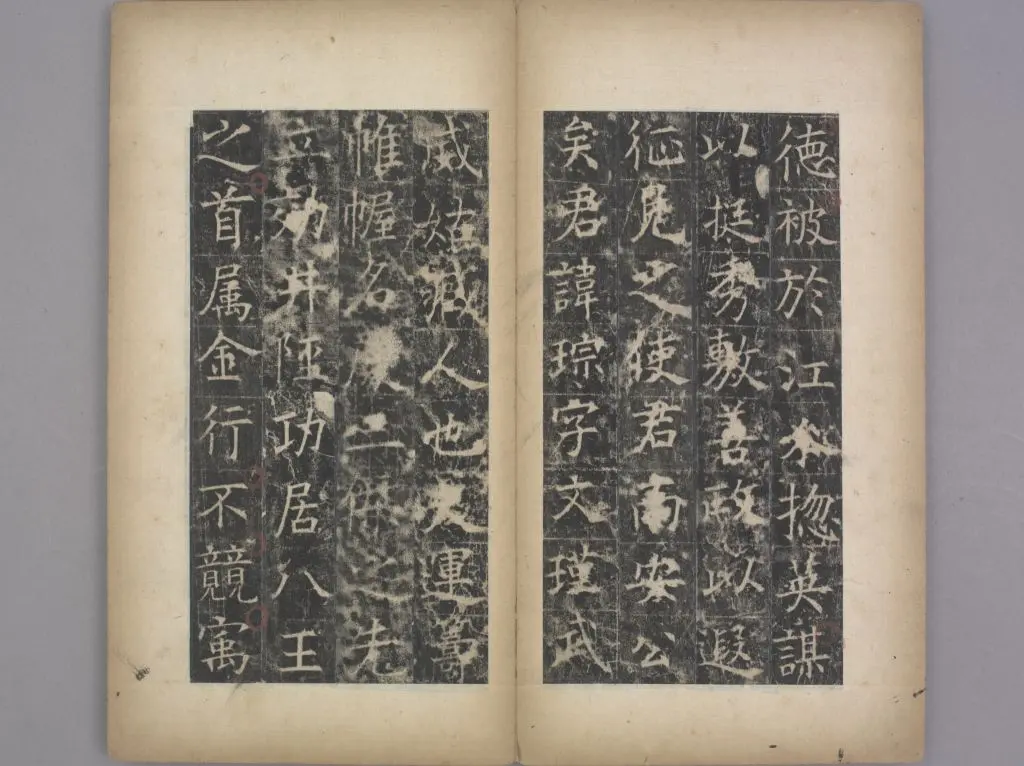 徳被於江水惣英謀
以挺秀敷善政以遐
征見之使君南安公
矣君諱琮字文瑾武
威姑臧人也夫運籌
帷幄名二傑之先
立効井陘功居八王
之首属金行不競寓